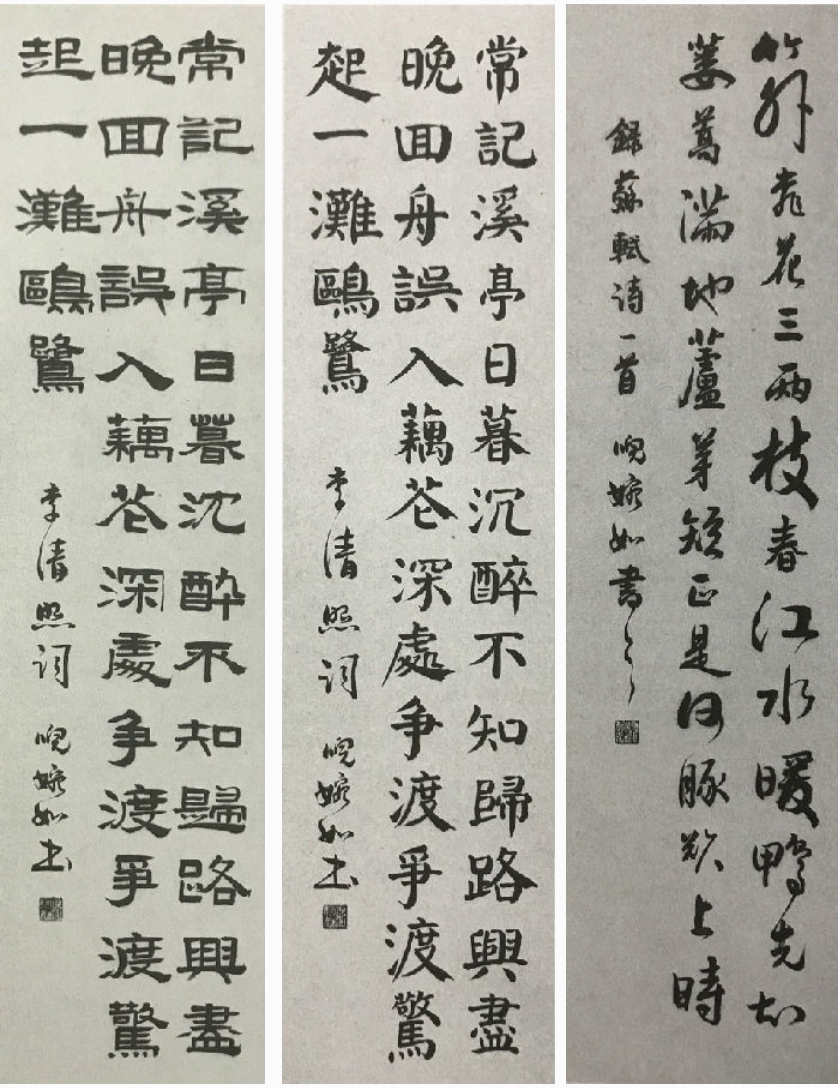 竹外桃花三兩枝春江水暖鴨先知
蔞蒿滿地蘆芽短正是河豚欲上時
録蘇軾诗一首 倪婉如書
常記溪亭日暮沉醉不知歸路興盡
晚回舟誤入藕花深處争渡爭渡驚
起一灘鷗鷺 李清照词 倪婉如书
常記溪亭日暮沈醉不知歸路興盡
晚回舟誤入藕花深處争渡爭渡驚
起一灘鷗鷺 李清照词 倪婉如书